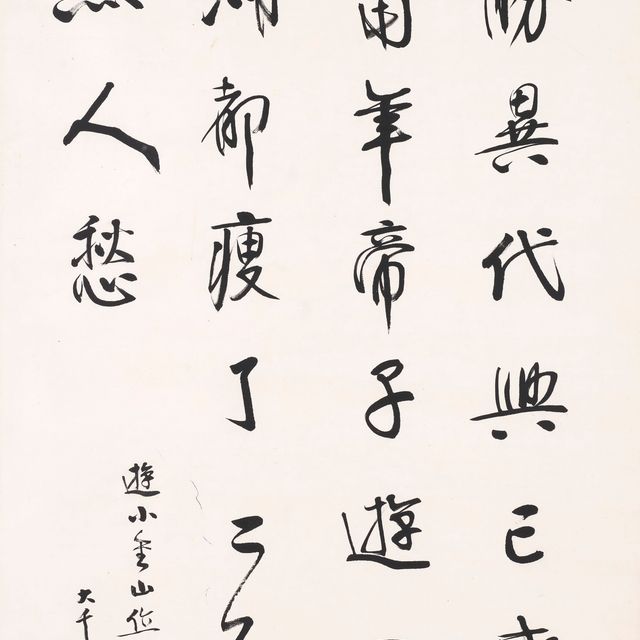 勝異代興已
年帝子遊
都瘦了二
人愁
遊小金山作
大千